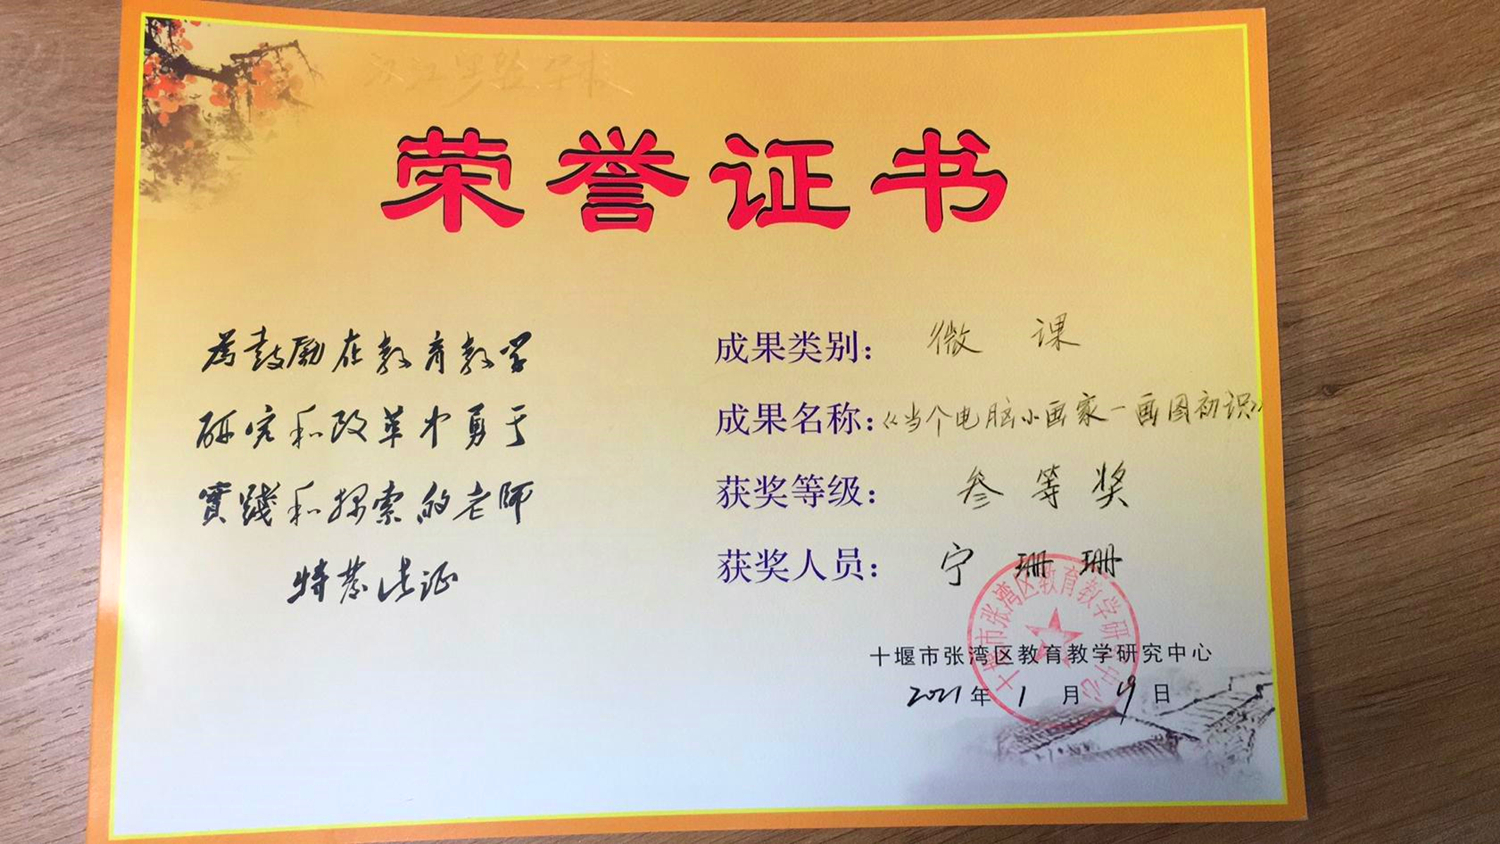 汉江实验学校
荣誉证书
為鼓励在教育教学
研究和改革中勇于
實踐和探索的老师
特发此证
成果类别：微 课
成果名称：《当个电脑小画家一画图初识》
获奖等级：叁 等 奖
获奖人员：宁 珊 珊
十堰市张湾区教育教学研究中心
十堰市张湾区教育教学研究中心
2021年 1 月 9 日